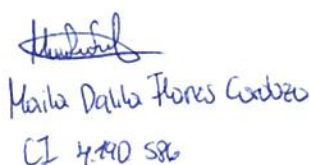 Maila Dalila Flores Cardozo
CI 4.190 586